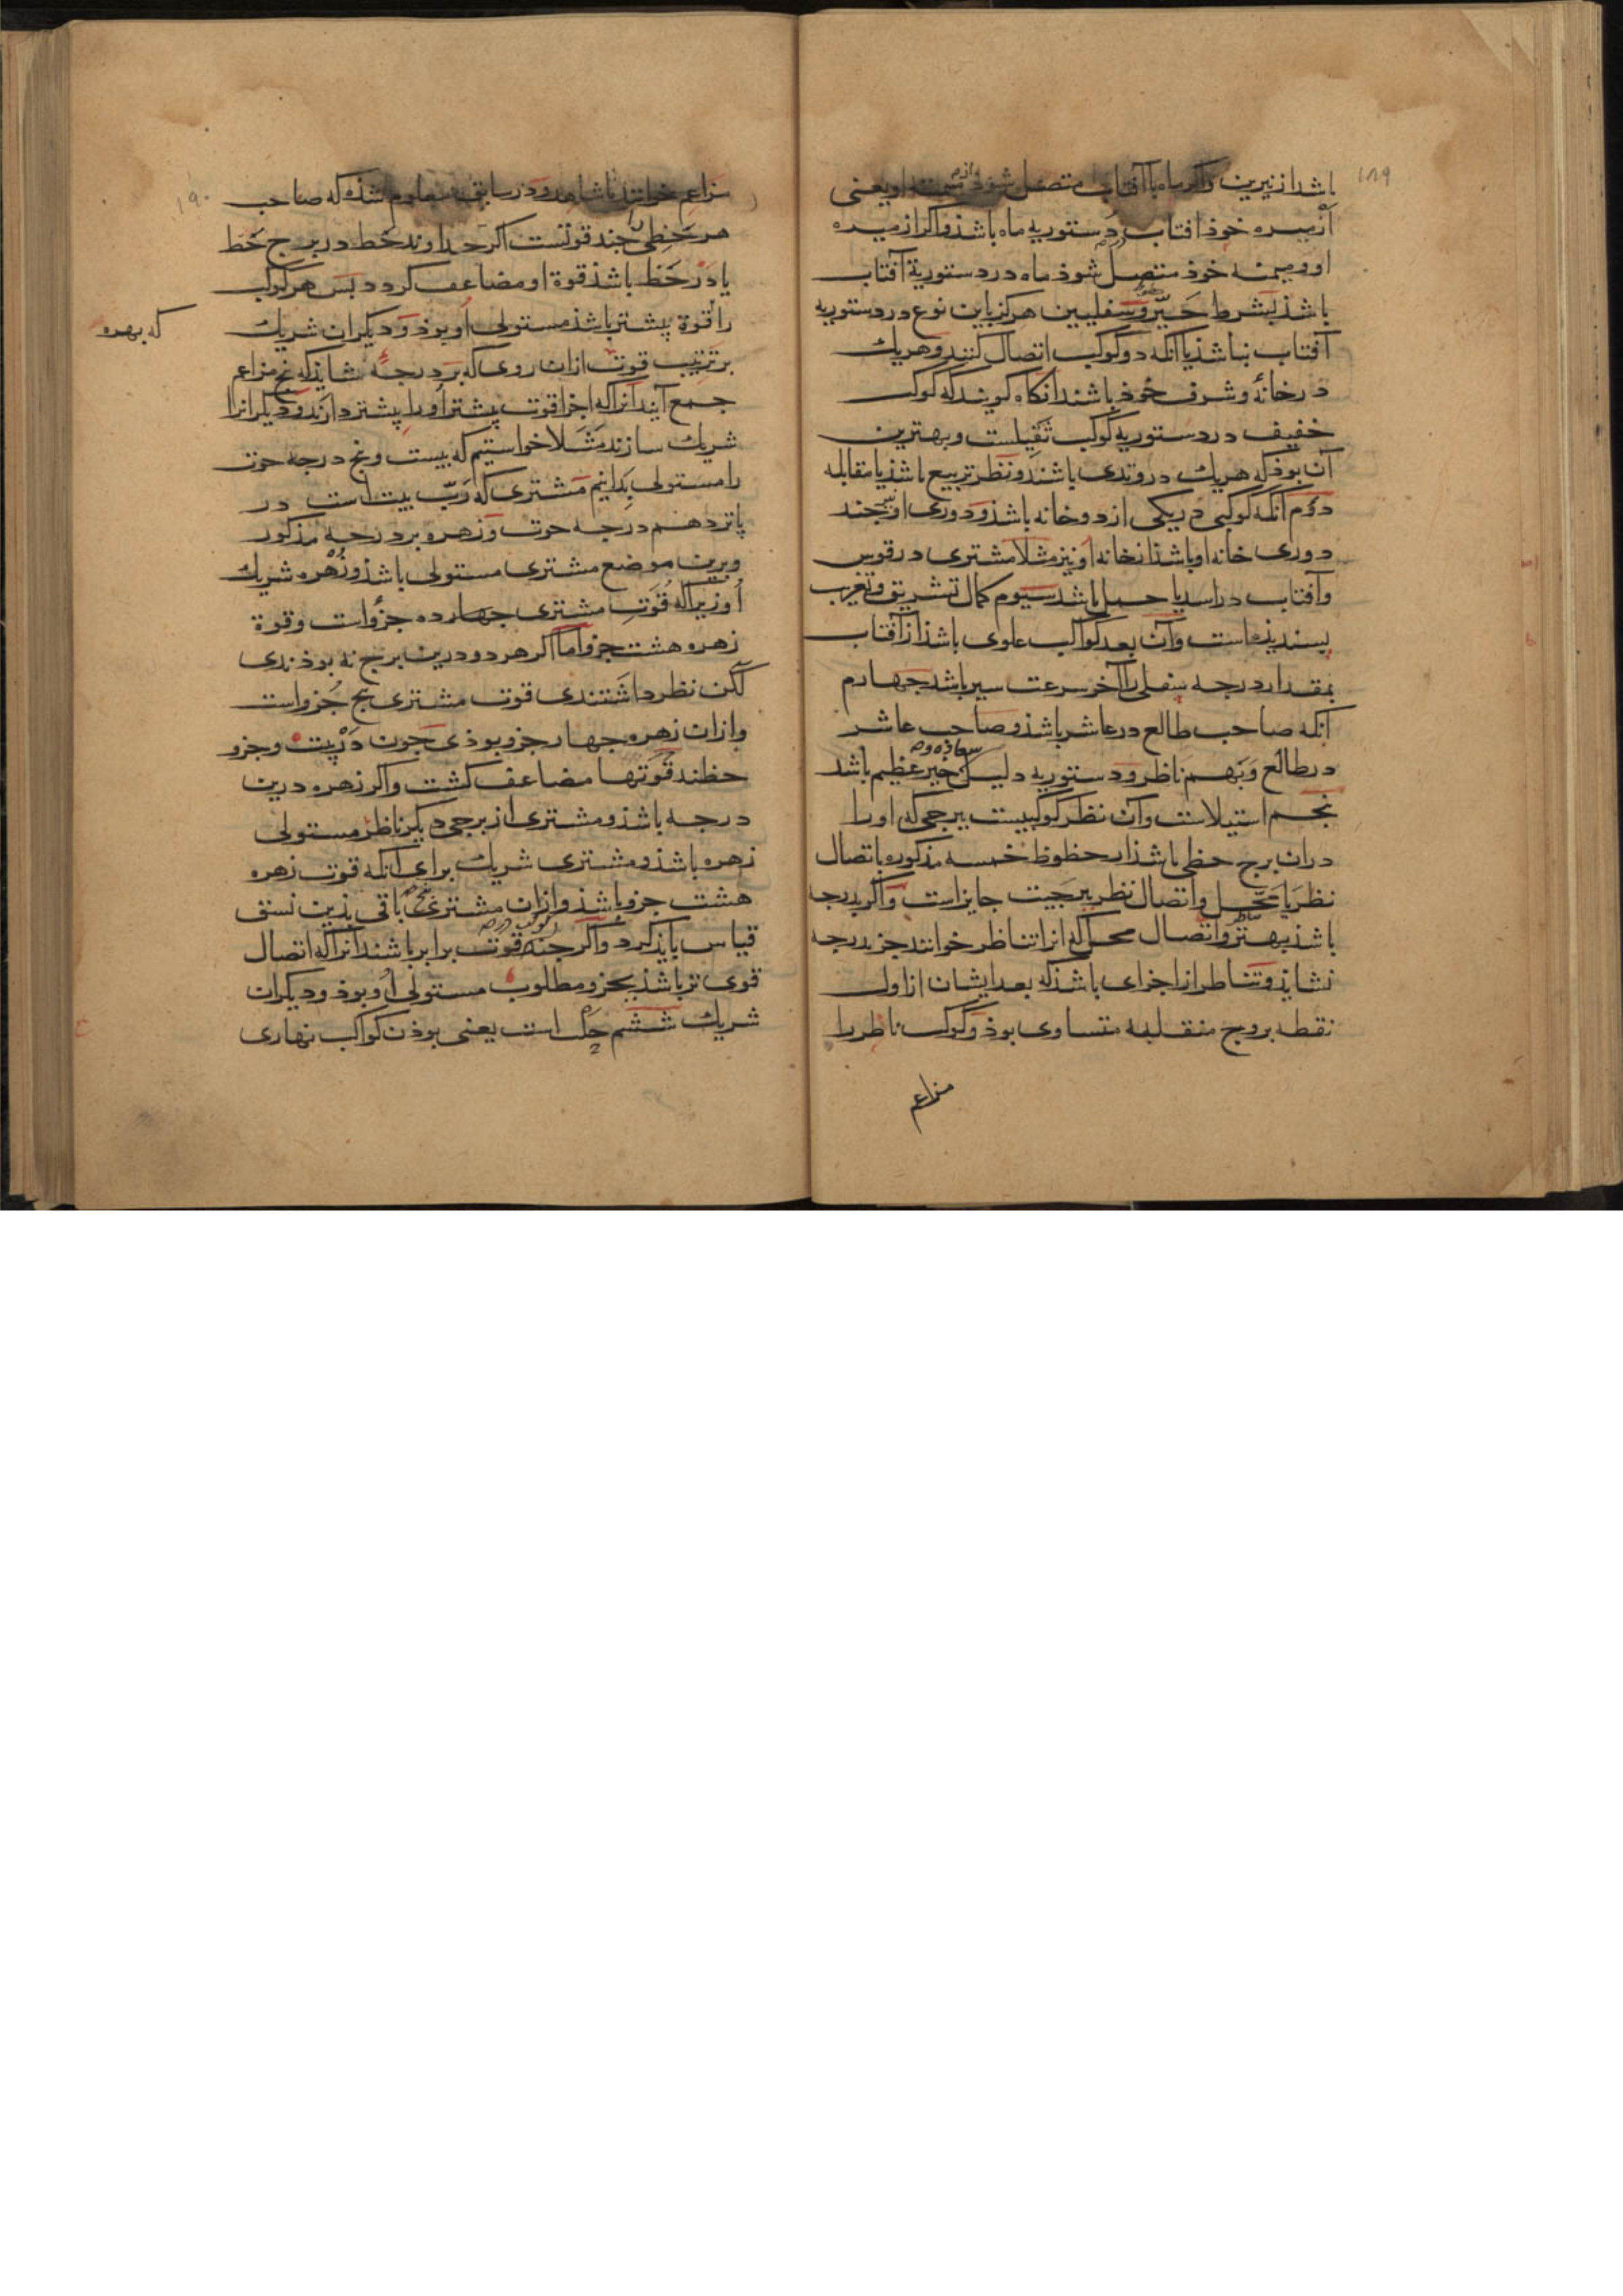 ۱۸۹
باشد از نیرین و اگر ماه با آفتاب متصل شود از میمنه او یعنی
از میسره خوذ افتاب دستوریه ماه باشذ و اگر از میسره
او و میمنه خوذ متصل شوذ ماه در دستوریة آفتاب
باشذ بشرط حیّز و سفلیین هرگز باین نوع در دستوریه
آفتاب نباشذ یا آنکه دو کوکب اتصال کنند و هریک
در خانهٔ و شرف خوذ باشند انکاه کویند که کوکب
خفیف در دستوریه کوکب ثقیلست و بهترین
آن بوذ که هریک در وتدی باشند و نظر تربیع باشذ یا مقابله
دوم آنکه کوکبی در یکی از دو خانه باشذ و دوری او نیر چند
دوری خانه او باشذ از خانه او نیز مثلا مشتری در قوس
وآفتاب در اسد یا حمل باشد سیوم کمال تشریق و تغریب
پسندیده است وآن بعد کواکب علوی باشذ از آفتاب
بمقدار درجه سفلی را آخر سرعت سیر باشد جهارم
آنکه صاحب طالع در عاشر باشذ و صاحب عاشر
در طالع و بهم ناظر و دستوریه دلیل خیر عظیم باشد
سعاده و
پنجم استیلاست وآن نظر کوکبیست ببرجی که او را
دران برج حظی باشذ از حظوظ خمسه مذکوره باتصال
نظر یا محل و اتصال نظر ببرجیت جایز است و اگر بدرجه
باشذ بهتر و اتصال محل که انرا تناظر خوانند جز بدرجه
تناظر
نشاید و تناظر از اجزای باشذ که بعد ایشان از اول
نقطه بروج منقلبه متساوی بوذ و کوکب ناظر را
مزاعم
۱۹۰
مزاعم خوانند یا شاهد و در سابق معلوم شذه که صاحب
هر حظی را چند قوتست اکر خداوند حظ در برج حظ
یا در حظ باشذ قوة او مضاعف کردد بس هر کوکب
را قوة پیشتر باشذ مستولی او بوذ و دیکران شریک
که بهره
بر ترتیب قوت ازان روی که بر درجهٔ شاید که پنج مزاعم
جمع آیند آنرا که اجزا قوت پیشتر او را پیشتر دارند و دیکر انرا
شریک سازند مثلا خواستیم که بیست و پنج درجه حوت
را مستولی بدانیم مشتری که رب بیت است در
پانزدهم درجه حوت و زهره بر درجه مذکور
وبرین موضع مشتری مستولی باشذ و زهره شریک
او زیرا که قوت مشتری جهارده جزو است وقوة
زهره هشت جزو اما اگر هر دو درین برج نه بوذندی
لکن نظر داشتندی قوت مشتری پنج جزو است
وازان زهره جهار جزو بوذی جون در بیت و جزو
حظند قوتها مضاعف کشت و اکر زهره درین
درجه باشذ و مشتری از برجی دیکر ناظر مستولی
زهره باشذ و مشتری شریک برای آنکه قوت زهره
هشت جزو باشذ وازان مشتری پنج باقی بذین نسق
قیاس بایذ کرد واکر چند کوکب در قوت برابر باشند آنرا که اتصال
قوی تر باشذ بجزو مطلوب مستولی او بوذ و دیکران
شریک ششم حلب است یعنی بوذن کواکب نهاری